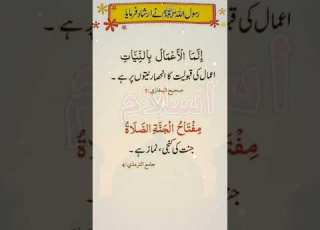 رسول اللہ ﷺ نے ارشاد فرمایا
إِنَّمَا الْأَعْمَالُ بِالنِّيَّاتِ
اعمال کی قبولیت کا انحصار نیتوں پر ہے ۔
صحیح البخاری:1
مِفْتَاحُ الْجَنَّةِ الصَّلَاةُ
جنت کی کنجی ، نماز ہے ۔
جامع الترمذی:4